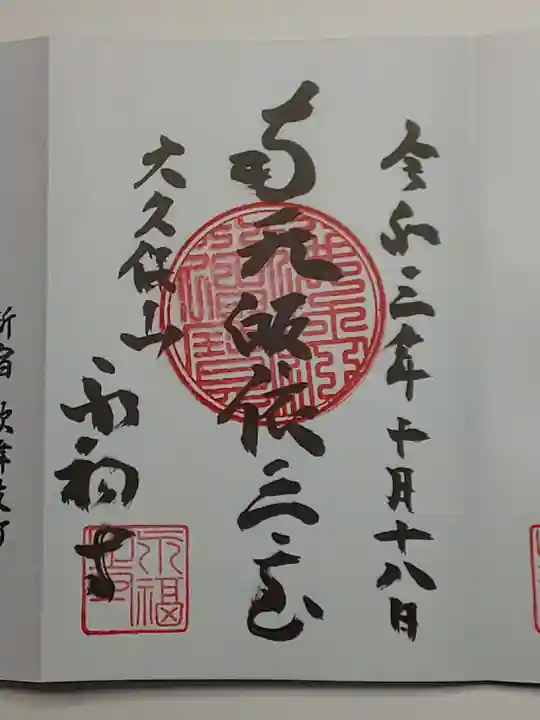 令和三年十月十八日
南无皈依三宝
大久保山
永福寺
永福
新宿 歌舞伎町